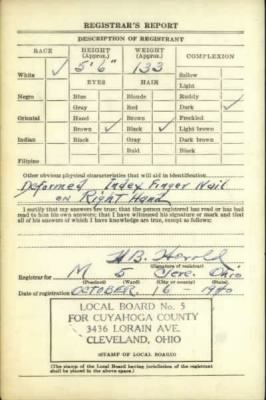 REGISTRAR'S REPORT
DESCRIPTION OF REGISTRANT
RACE HEIGHT (Approx.) WEIGHT (Approx.) COMPLEXION
White ✓ 5' 6" 133 Sallow
EYES HAIR Light
Negro Blue Blonde Ruddy
Gray Red Dark ✓
Oriental Hazel Brown Freckled
Brown ✓ Black ✓ Light brown
Indian Black Gray Dark brown
Bald Black
Filipino
Other obvious physical characteristics that will aid in identification
Deformed Index Finger Nail
on Right Hand
I certify that my answers are true; that the person registered has read or has had
read to him his own answers; that I have witnessed his signature or mark and that
all of his answers of which I have knowledge are true, except as follows:
(Signature of registrar)
Registrar for M 5 Cleve. Ohio
(Precinct) (Ward) (City or county) (State)
Date of registration OCTOBER 16 - 1940
LOCAL BOARD No. 5
FOR CUYAHOGA COUNTY
3436 LORAIN AVE.
CLEVELAND, OHIO
(STAMP OF LOCAL BOARD)
(The stamp of the Local Board having jurisdiction of the registrant
shall be placed in the above space.)